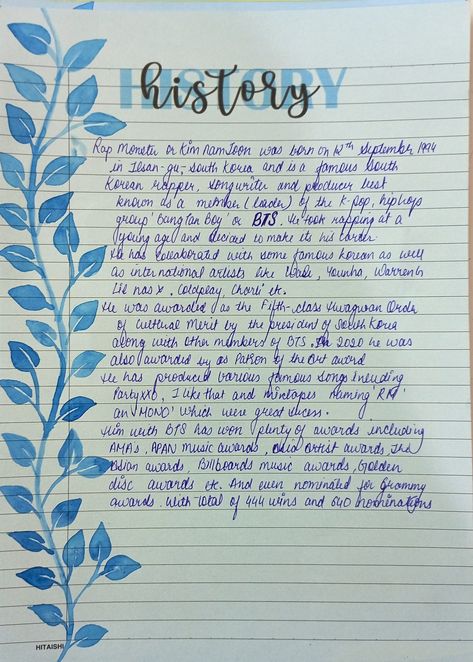 HISTORY
history
Rap Monster or Kim Namjoon was born on 12th September 1994
in Ilsan-gu, South Korea and is a famous South
Korean rapper, songwriter and producer best
known as a member (Leader) of the K-pop, hiphop
group 'bangtan boy' or BTS. He took rapping at a
young age and decided to make its his career
He has collaborated with some famous Korean as well
as international artists like Wale, Younha, Warren G
Lil nas X, Coldplay, Charli etc.
He was awarded as the Fifth-class Hwagwan Order
of cultural Merit by the president of South Korea
along with other members of BTS. In 2020 he was
also awarded by as Patron of the Art award
He has produced various famous songs Including
Partyxxo, I like that and mixtapes Naming RM'
an 'MONO' which were great success.
Him with BTS has won plenty of awards including
AMAs, APAN music awards, Artist awards, The
Asian awards, Billboards music awards, Golden
disc awards etc. And even nominated for Grammy
awards. With total of 444 wins and 640 nominations
HITAISHI